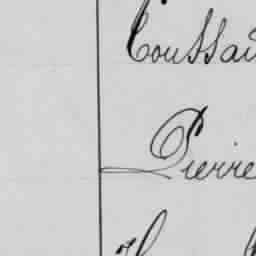 Toussai
Pierre